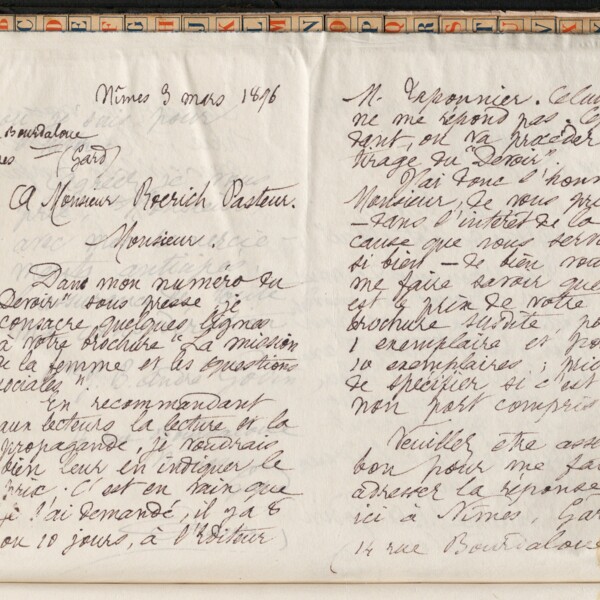 D C D E F G H I J K L M N D P Q R S T U V X
Nîmes 3 mars 1896
Bourdaloue
es = (Gard)
A Monsieur Roerich Pasteur.
Monsieur
Dans mon numéro du
Devoir" sous presse je
consacre quelques lignes
à votre brochure "La mission
de la femme et les questions
sociales".
En recommandant
aux lecteurs la lecture et la
propagande, je voudrais
bien leur en indiquer le
prix. C'est en vain que
je l'ai demandé, il y a 8
ou 10 jours, à l'Editeur
M. Taponnier. Celui
ne me répond pas. C
dant, on va procéder
tirage du "Devoir".
J'ai donc l'honn
Monsieur, de vous pri
– dans l'intérêt de la
cause que vous serv
si bien – de bien vou
me faire savoir quel
est le prix de votre
brochure susdite, po
1 exemplaire et po
10 exemplaires; pri
de spécifier si c'est
non port compris
Veuillez être asse
bon pour me fai
adresser la réponse
ici à Nîmes, Gar
(14 rue Bourdaloue